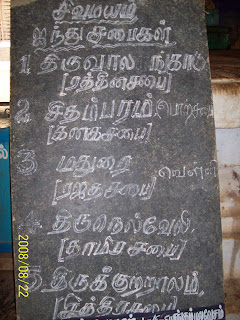 சிவமயம்
ஐந்து சபைகள்
1 திருவாலங்காடு
[ரத்தினசபை]
2 சிதம்பரம் பொற்சபை
[கனகசபை]
3 மதுரை வெள்ளி
[ரஜதசபை]
4 திருநெல்வேலி
[தாமிரசபை]
5. திருக்குற்றாலம்
[சித்திரசபை]
2008/08/22